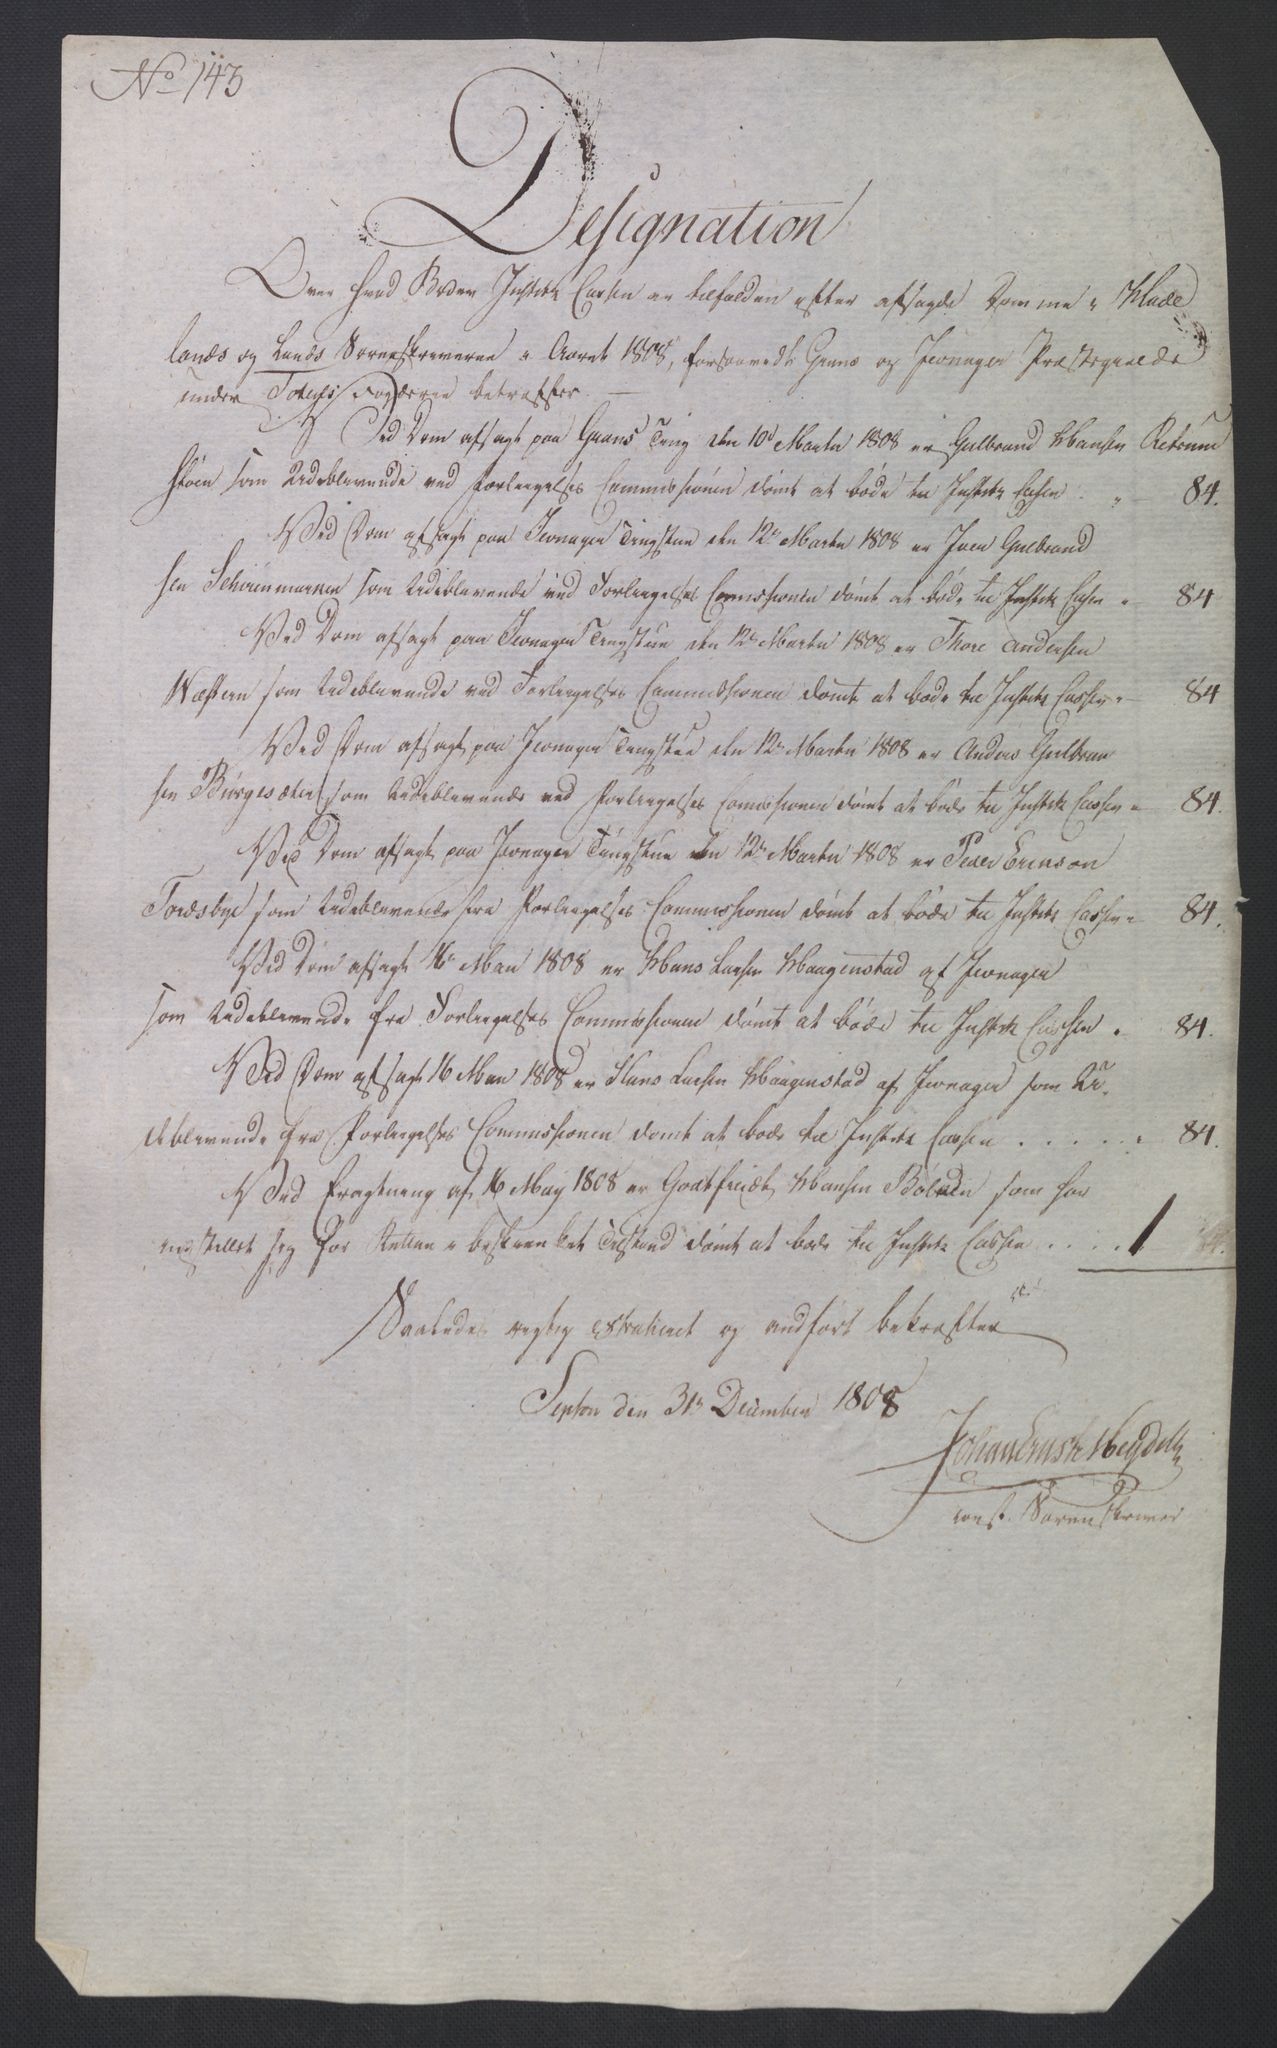 No 143
Designation
Over hvad Bøder Justits Cassen er tilfalden efter afsagde Domme i Hade
lands og Lands Sorenskriverie i Aaret 1808, forsaavidt Grans og Jevnager Præstegield
under Totens Fogderie betreffer.
Ved Dom afsagt paa Grans Ting den 10de Martii 1808 er Gulbrand Hansen
støen som Udeblivende ved Forliigelses Commissionen dømt at bøde til Justits Cassen " 84.
Ved Dom afsagt paa Jevnager Tingstue den 12te Martii 1808 er Iver Gulbrand
sen som Udeblivende ved Forliigelses Comissionen dømt at bøde til Justits Cassen " 84
Ved Dom afsagt paa Jevnager Tingstue den 12te Martii 1808 er Thore Andersen
Næstern som Udeblivende ved Forliigelses Commissionen dømt at bøde til Justits Cassen " 84
Ved Dom afsagt paa Jevnager Tingstue den 12te Martii 1808 er Anders Gulbran
sen Børgesæter som Udeblivende ved Forliigelses Comissionen dømt at bøde til Justits Cassen " 84.
Ved Dom afsagt paa Jevnager Tingstue den 12te Martii 1808 er Peder Ericson
Tordsbye som Udeblivende fra Forliigelses Commissionen dømt at bøde til Justits Cassen " 84.
Ved Dom afsagt 16de Maii 1808 er Hans Larsen Haagenstad af Jevnager
som Udeblivende fra Forliigelses Commissionen dømt at bøde til Justits Cassen " 84.
Ved Dom afsagt 16 Maii 1808 er Hans Larsen Haagenstad af Jevnager som U
deblivende fra Forliigelses Commissionen dømt at bøde til Justits Cassen . . . . . " 84.
Ved Eragtning af 16 May 1808 er Goatfried Hansen som har
indstillet sig for Retten i beskienket Tilstand dømt at bøde til Justits Cassen . . . . 1
Saaledes rigtig extraheret og andført bekræfter
den 31te December 1808
Johan Ernst Heydell
const. Sorenskriver